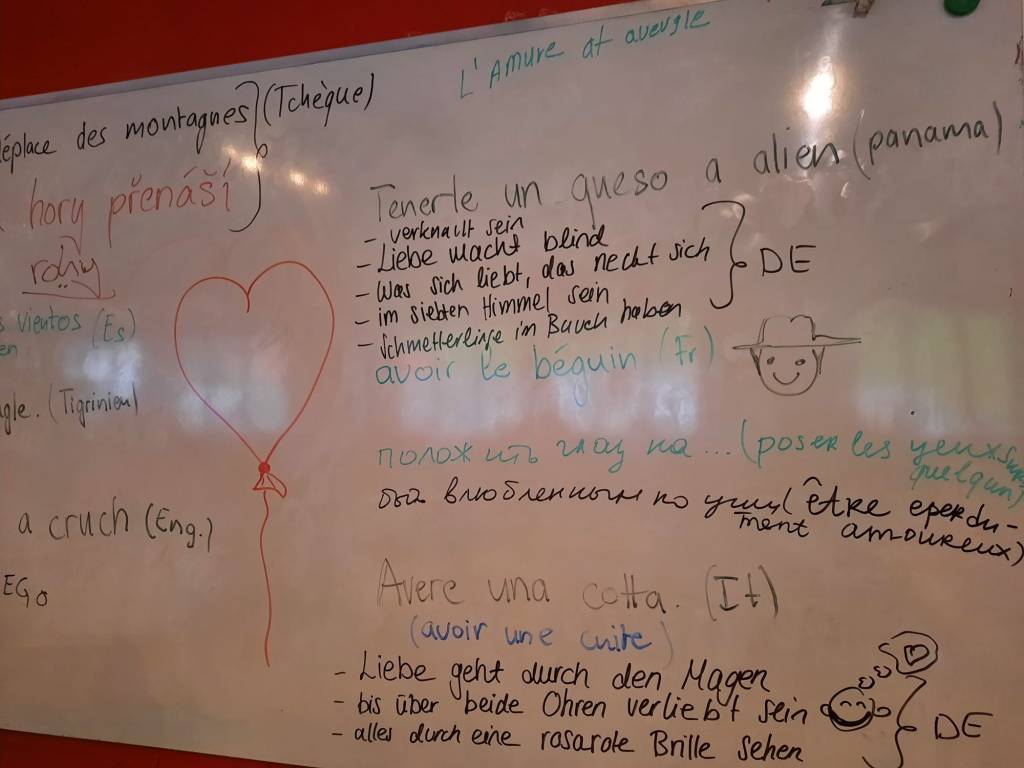 L'Amure at aveugle
déplace des montagnes (Tchèque)
hory přenáší
vientos (Es)
en
(Tigrinien)
a cruch (Eng.)
EGO
Tenerle un queso a alien (panama)
- verknallt sein
- Liebe macht blind
- Was sich liebt, das neckt sich
- im siebten Himmel sein
- Schmetterlinge im Bauch haben
DE
avoir le béguin (Fr)
положить глаз на... (poser les yeux sur
quelqun)
влюбленным по уши (être eperdu-
ment amoureux)
Avere una cotta. (It)
(avoir une cuite)
- Liebe geht durch den Magen
- bis über beide Ohren verliebt sein
- alles durch eine rosarote Brille sehen
DE